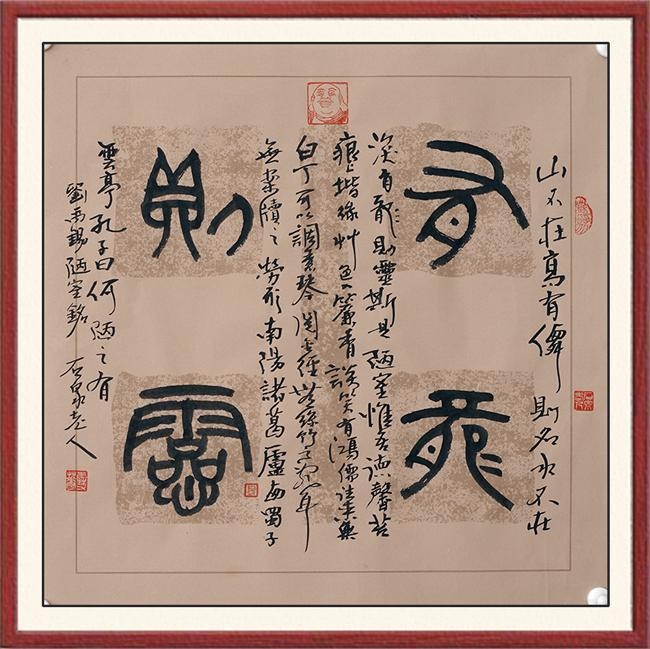 有龍
則靈
山不在高有僊則名水不在
深有龍則靈斯是陋室惟吾德馨苔
痕上堦綠艸色入簾青談笑有鴻儒往來無
白丁可以調素琴閱金經無絲竹之亂耳
無案牘之勞形南陽諸葛廬西蜀子
雲亭孔子曰何陋之有
劉禹錫陋室銘 石泉老人